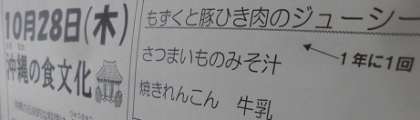 10月28日(木)
沖縄の食文化
もずくと豚ひき肉のジューシー
1年に1回
さつまいものみそ汁
焼きれんこん 牛乳